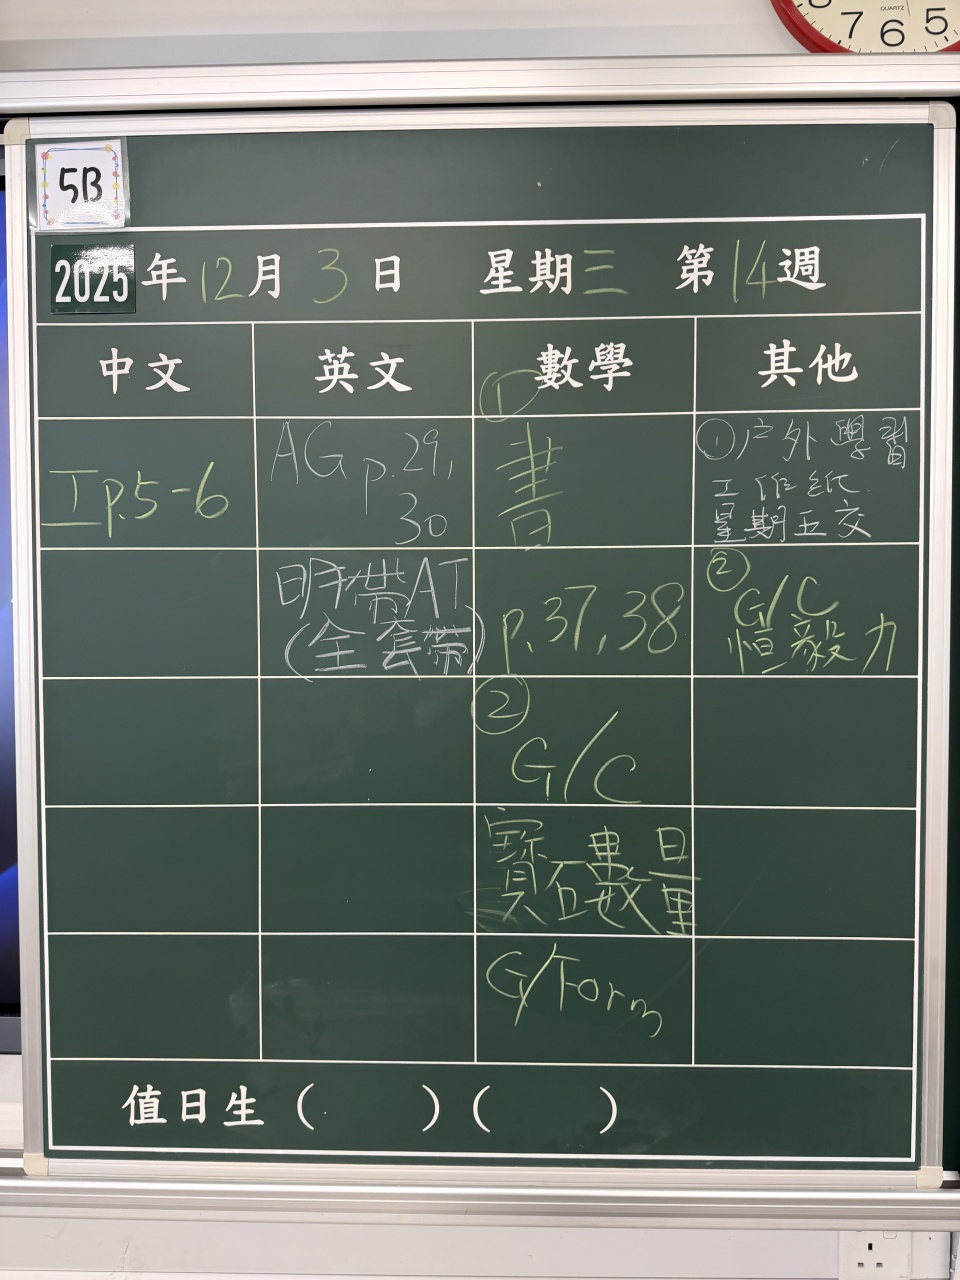 QUARTZ
7 6 5
5B
2025年12月3日 星期三 第14週
中文 英文 數學 其他
工p.5-6
AG p.29,
30
明帶AT
(全套帶)
①
書
p.37,38
②
G/C
寶石數量
G/Form
①户外學習
工作紙
星期五交
②
G/C
恒毅力
值日生( )( )